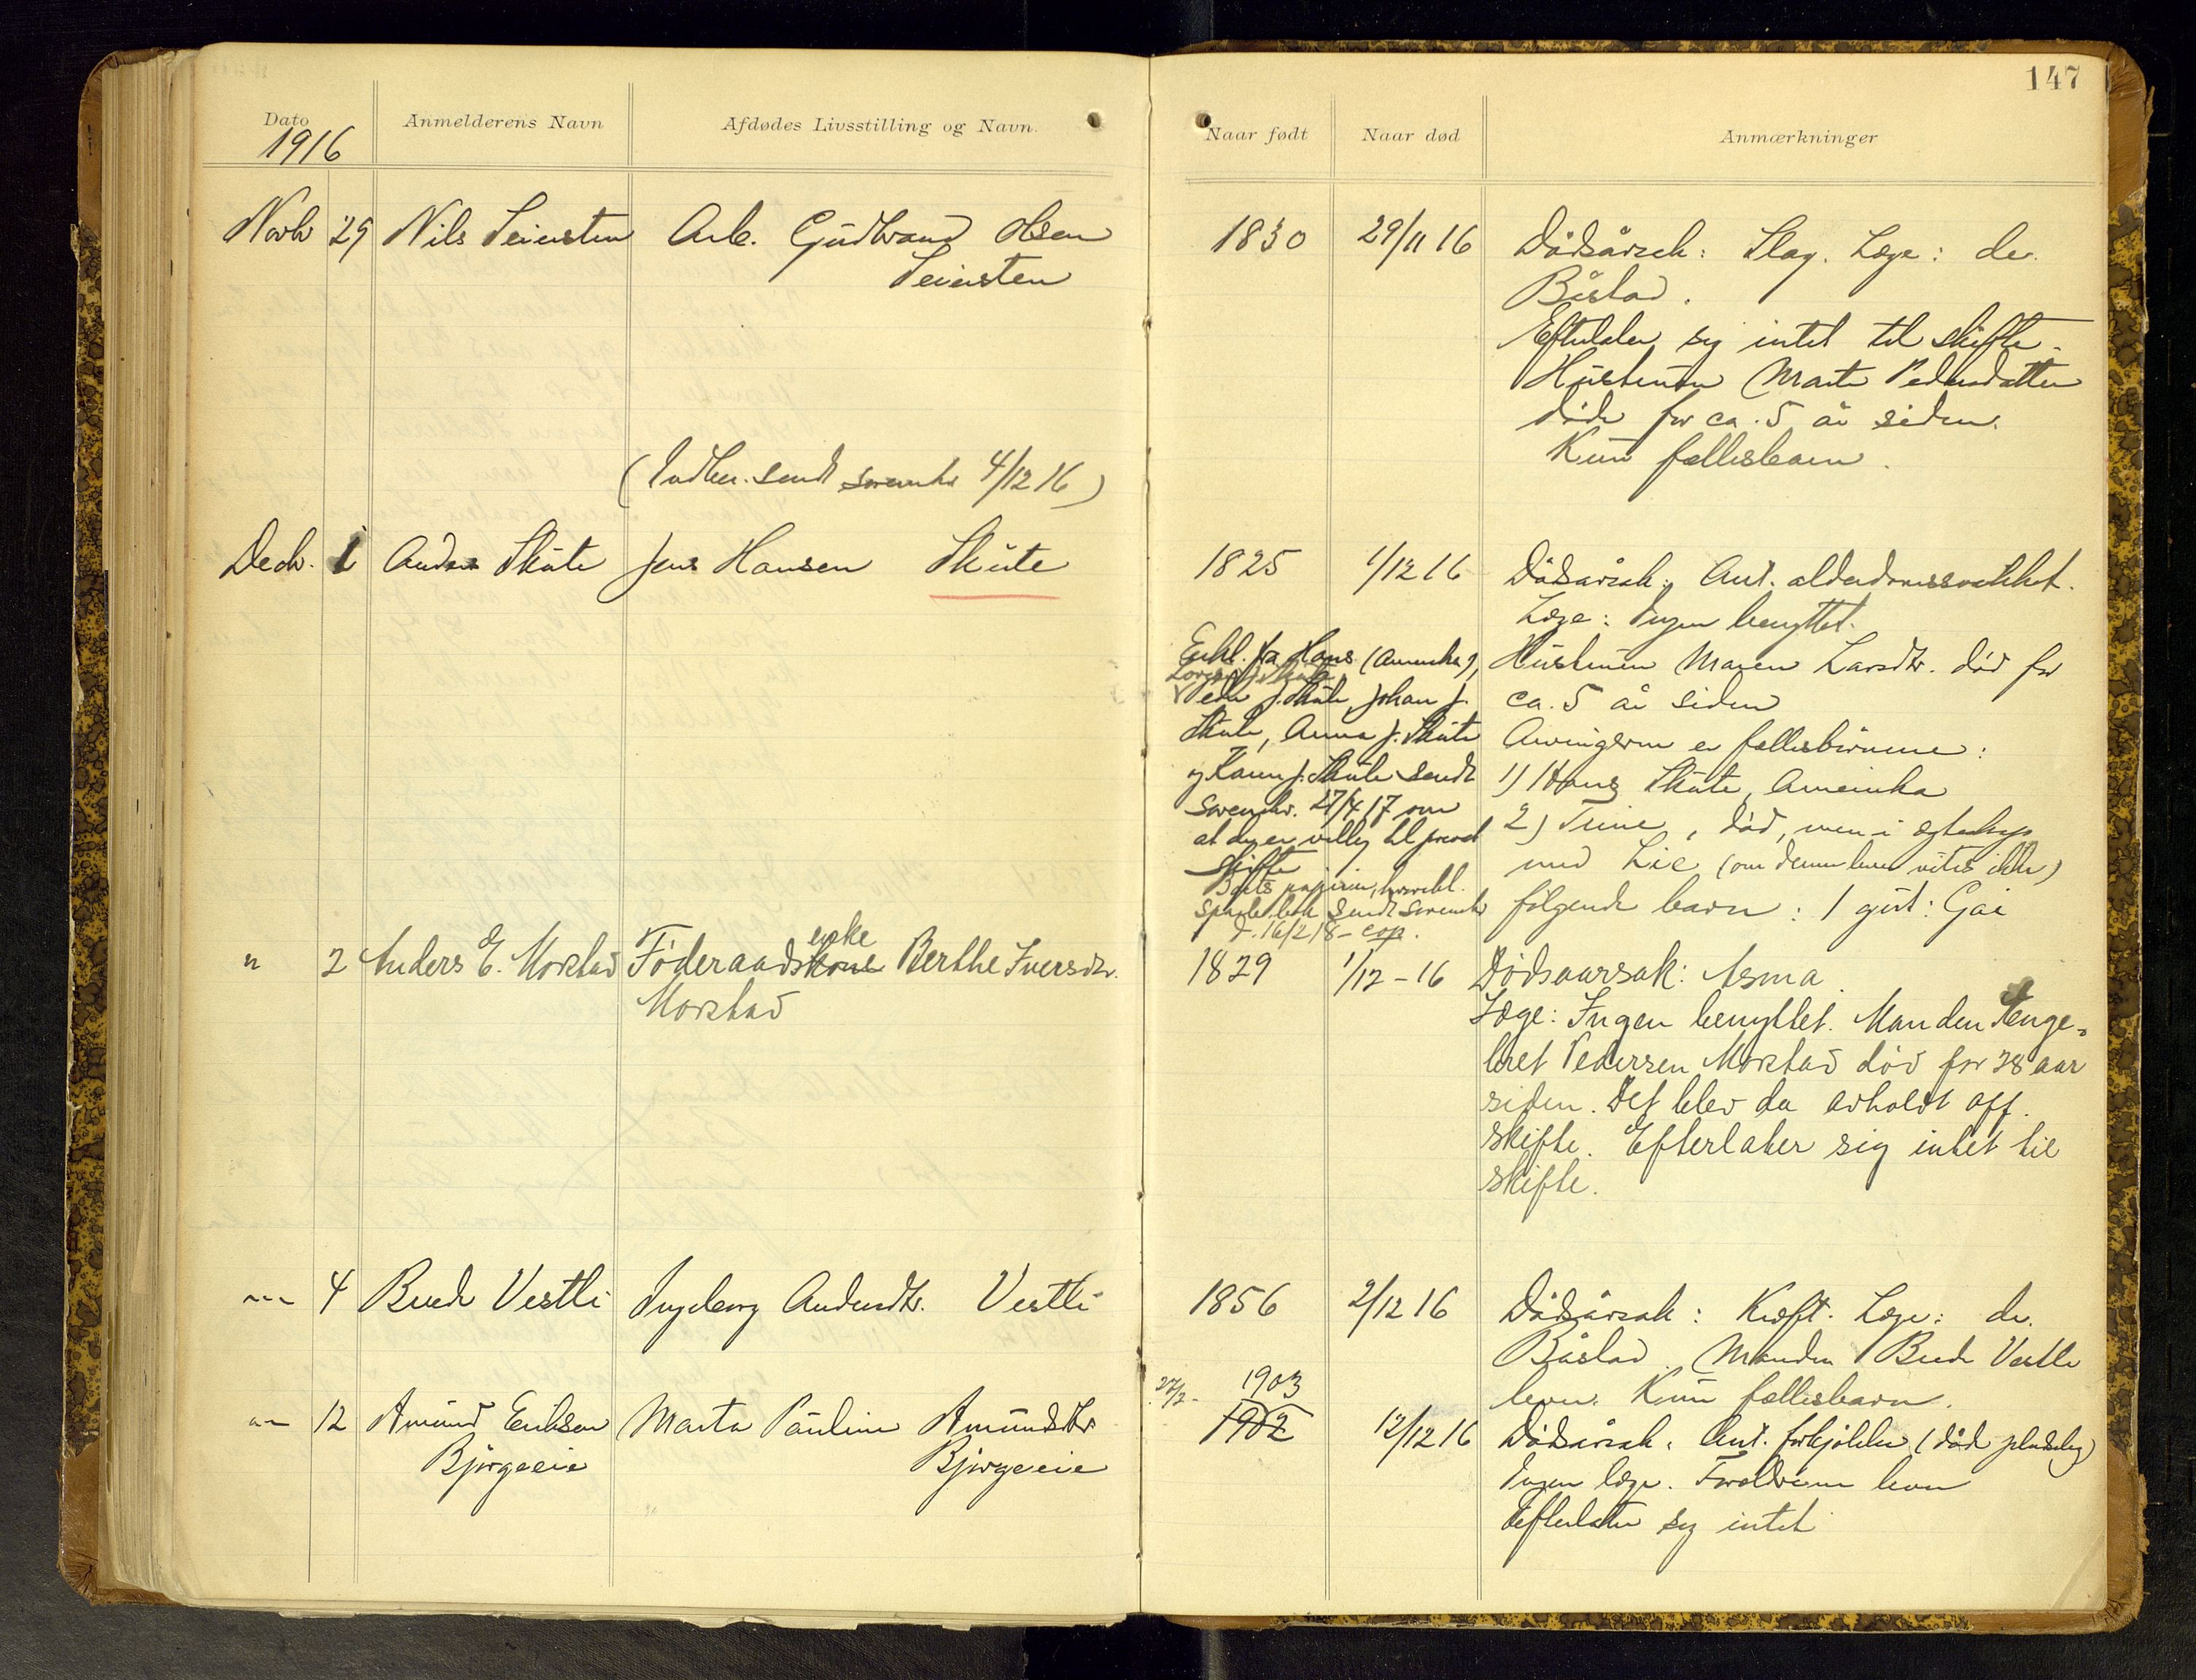 147
Dato
Anmelderens Navn
Afdødes Livsstilling og Navn.
Naar født
Naar død
Anmærkninger
1916
Novbr 29 Nils Seiersten Arb. Gudbrand Olsen
Seiersten
1830 29/11 16 Dødsårsak: Slag. Læge: dr.
Båstad.
Efterlater sig intet til skifte.
Hustruen Marte Pedersdatter
døde for ca. 5 år siden.
Kun fællesbarn.
(Indber. sendt sorenskr 4/12 16)
Decbr. 1 Anders Skute Jens Hansen Skute
1825 1/12 16 Dødsårsak: Ant. alderdomssvakhet.
Læge: Ingen benyttet.
Hustruen Maren Larsdtr. død for
ca. 5 år siden
Arvingerne er fællesbørnene:
1) Hans Skute, Amerika
2) Trine, død, men i ægteskap
med Lie (om denne lever vites ikke)
følgende barn: 1 gut: Gai
Erkl. fra Hans (Amerika),
Peder J. Skute, Johan J.
Skute, Anna J. Skute
og Karen J. Skute sendt
sorenskr. 27/4 17 om
at de er villig til privat
skifte
Boets papirer,
sendt sorenskr
d. 16/2 18 - cop.
" 2 Anders E. Morstad Føderaadskone enke Berthe Iversdtr.
Morstad
1829 1/12 - 16 Dødsaarsak: Asma.
Læge: Ingen benyttet. Manden Enge-
bret Pedersen Morstad død for 28 aar
siden. Det blev da avholdt off.
skifte. Efterlater sig intet til
skifte.
-"- 4 Brede Vestli Ingeborg Andersdtr. Vestli
1856 2/12 16 Dødsårsak: Kræft. Læge: dr.
Båstad. Manden Brede Vestli
lever. Kun fællesbarn.
27/2 - 1903
-"- 12 Amund Eriksen Marta Pauline Amundsdtr
Bjørgeeie Bjørgeeie
1902 12/12 16 Dødsårsak: Ant. forkjølelse (død pludselig)
Ingen læge. Forældrene lever
Efterlater sig intet